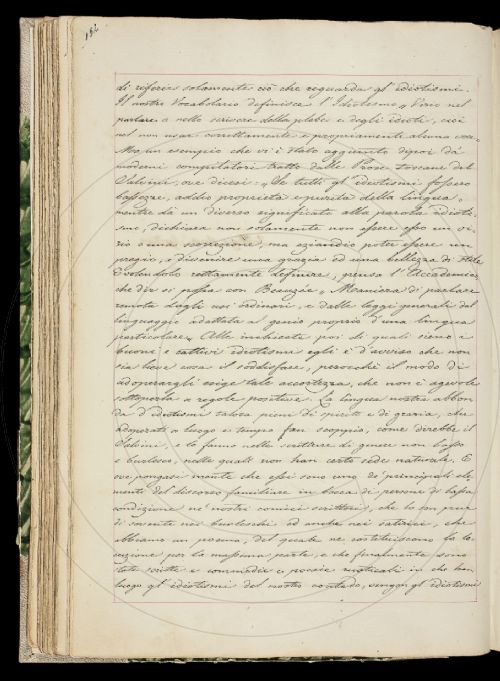 184
di riferir solamente ciò che riguarda gl' idiotismi.
Il nostro Vocabolario definisce l' Idiotismo „ Vizio nel
parlare, o nello scrivere della plebe e degli idioti, cioè
nel non usar correttamente e propriamente alcuna voce.
Ma un esempio che vi è stato aggiunto dipoi da'
moderni compilatori tratto dalle Prose toscane del
Salvini, ove dicesi: „ Se tutti gl' idiotismi fossero
bassezze, addio proprietà e purità della lingua „
mentre dà un diverso significato alla parola idiotis-
mo, dichiara non solamente non essere esso un vi-
zio o una scorrezione, ma eziandio poter essere un
pregio, e divenire una grazia ed una bellezza di stile
E volendolo rettamente definire, pensa l' Accademico
che dir si possa con Beauzée, Maniera di parlare
remota dagli usi ordinari, e dalle leggi generali del
linguaggio adattata al genio proprio d' una lingua
particolare „ Alla inchiesta poi di quali sieno i
buoni e cattivi idiotismi egli è d' avviso che non
sia lieve cosa il soddisfare, perocchè il modo di
adoperargli esige tale accortezza, che non è agevole
sottoporla a regole positive. La lingua nostra abbon-
da d' idiotismi talora pieni di spirito e di grazia, che
adoperati a luogo e tempo fan scoppio, come direbbe il
Salvini, e lo fanno nelle scritture di genere non basso
e burlesco, nelle quali non han certo sede naturale. E
ove pongasi mente che essi sono uno de' principali ele-
menti del discorso familiare in bocca di persone di bassa
condizione ne' nostri comici scrittori, che lo son pur
di sovente nei burleschi ed anche nei satirici, che
abbiamo un poema, del quale ne costituiscono la lo-
cuzione per la massima parte, e che finalmente sono
state scritte e commedie e poesie rusticali in che han
luogo gl' idiotismi del nostro contado, vengon gl' idiotismi